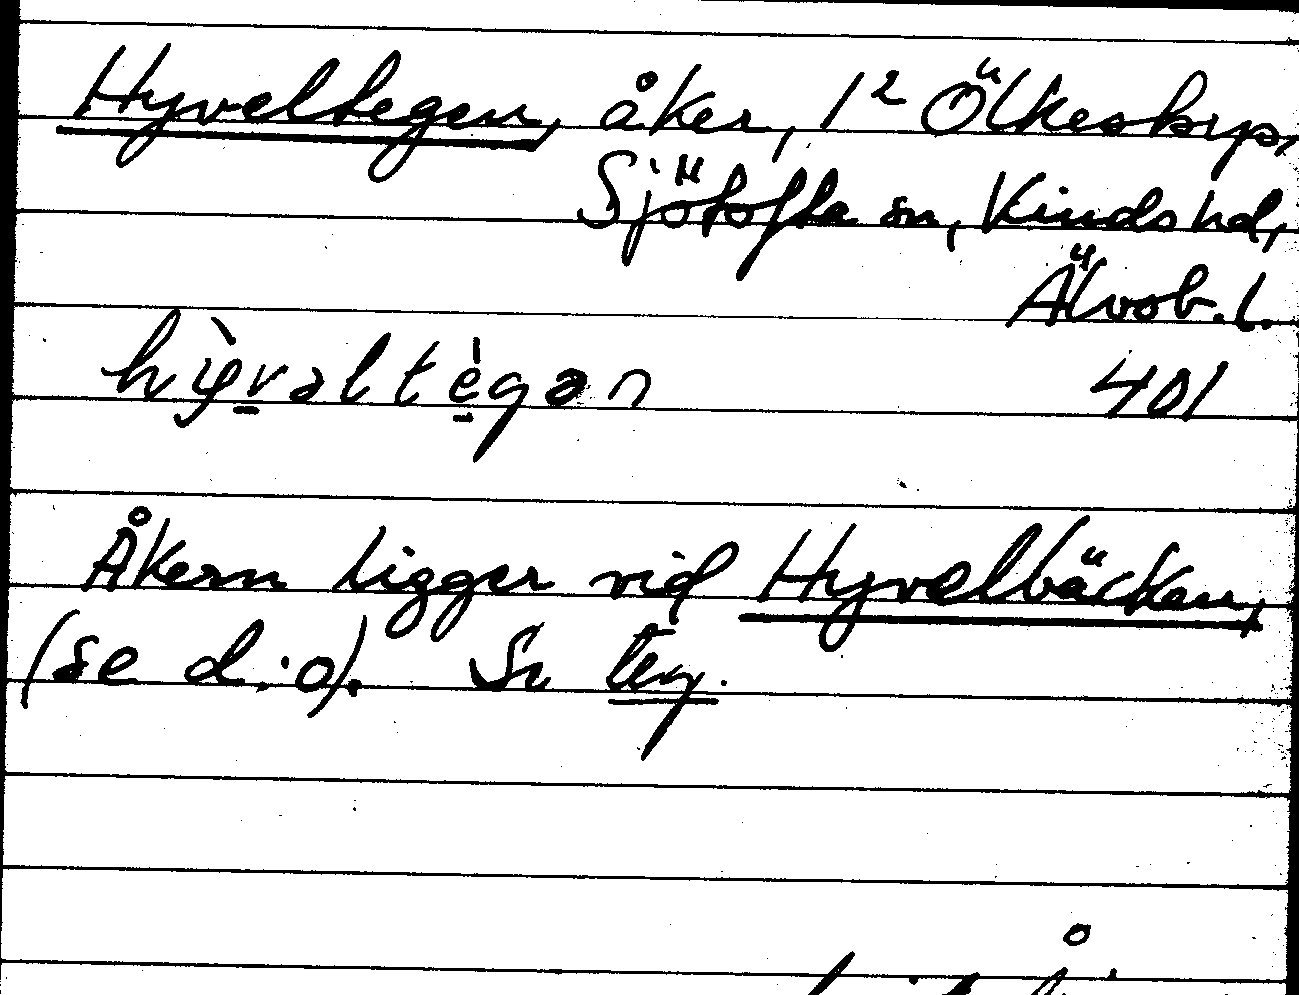 Hyveltegen, åker, 1² Ölkesbyp,
Sjötofta sn, Kinds hd,
Älvsb. l.
hỳ̠vəltè̠gən 401
Åkern ligger vid Hyvelbäcken,
(se d:o). Sv teg.